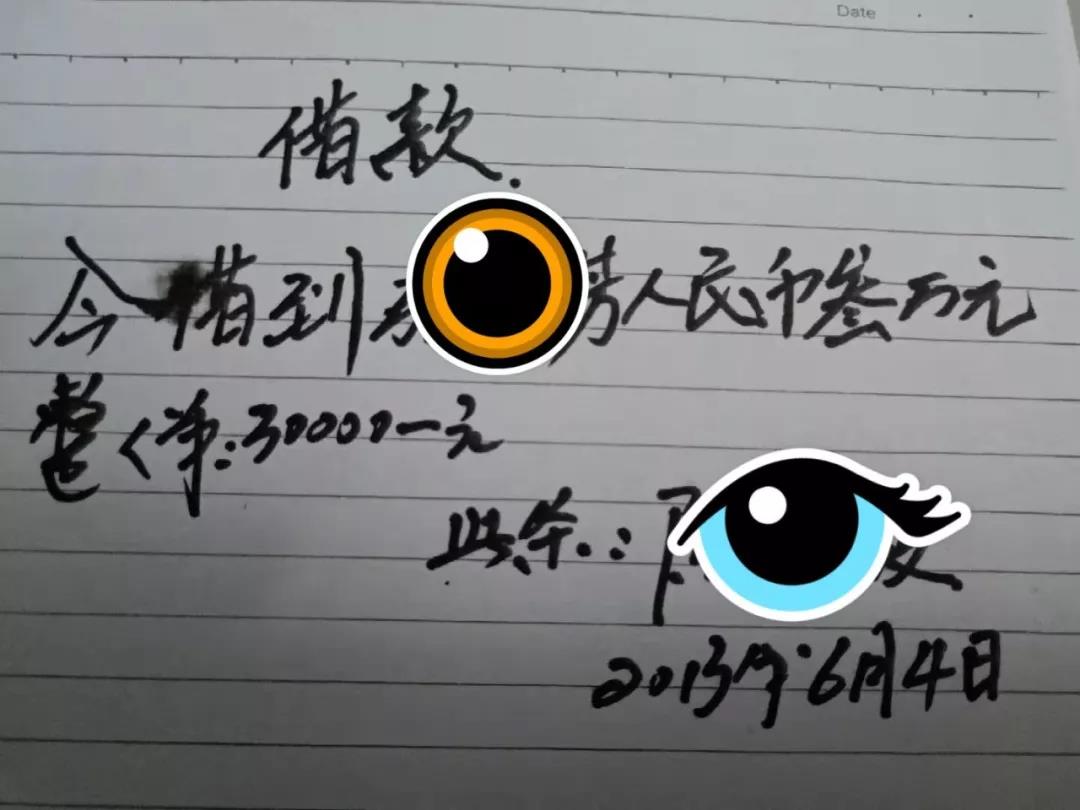 Date . .
借款.
今借到 人民币叁万元
整(净:30000一元
此条.:
2013年.6月4日